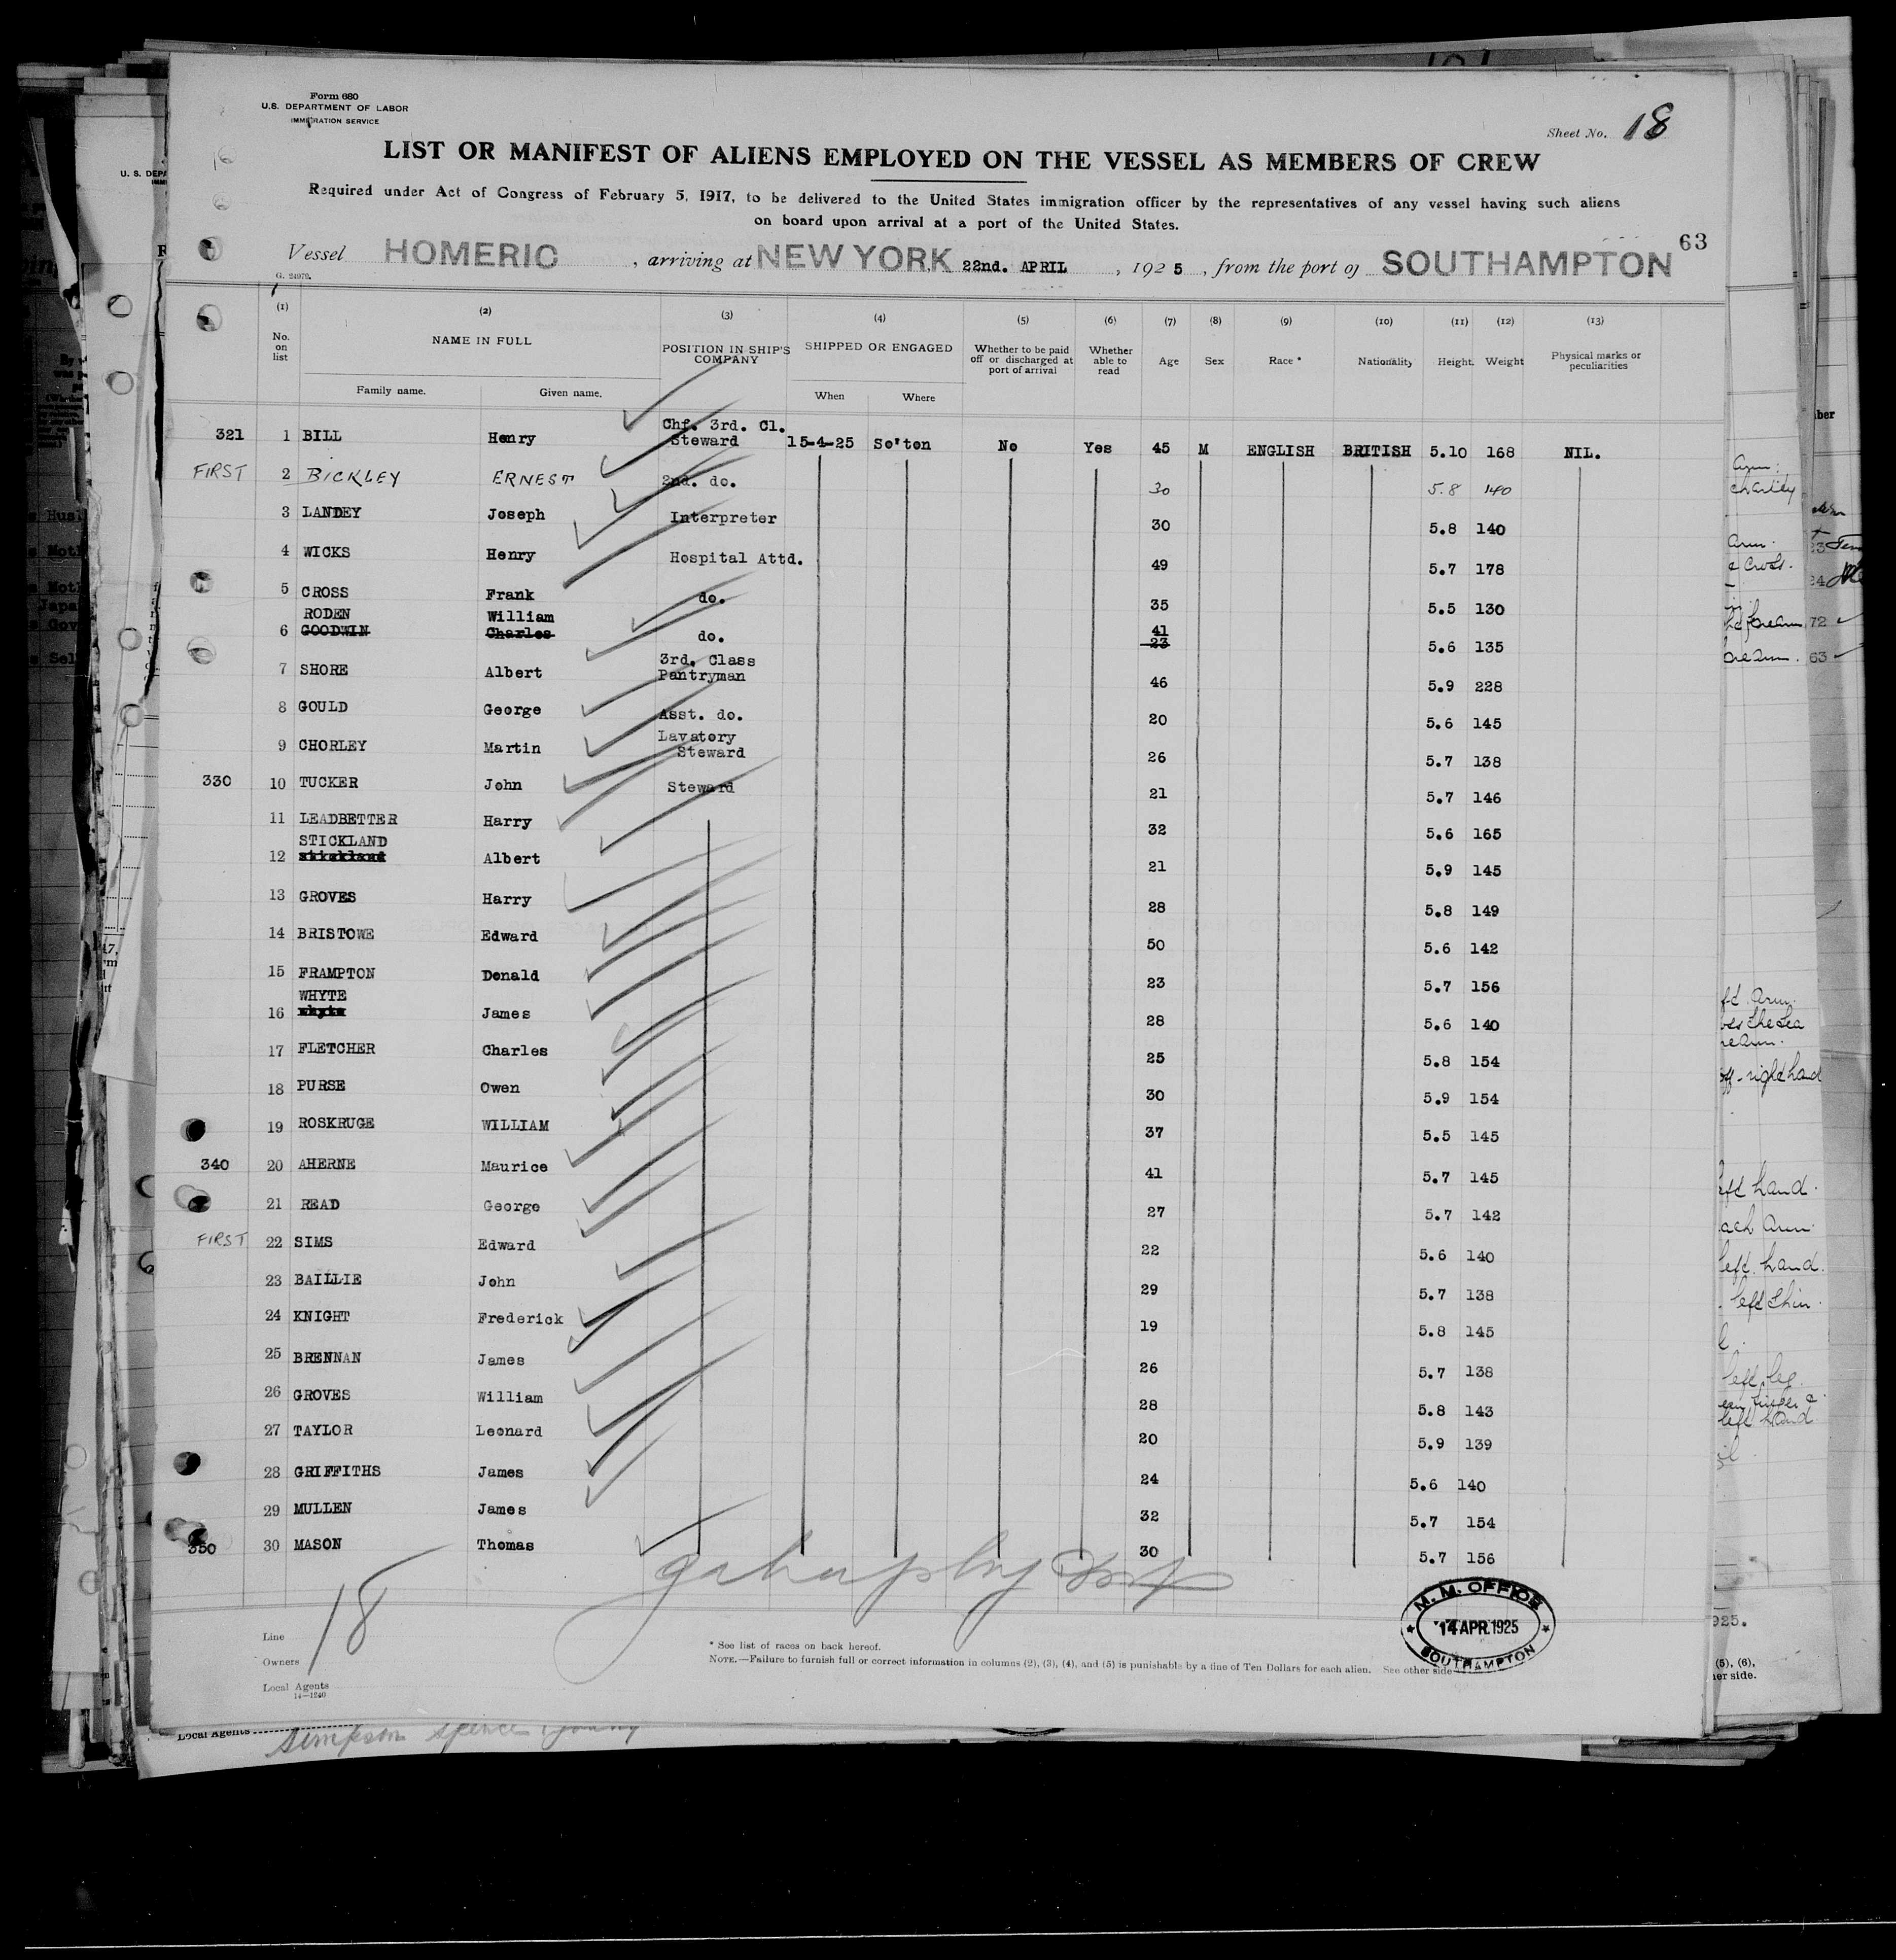 Form 680
U.S. DEPARTMENT OF LABOR
IMMIGRATION SERVICE
Sheet No. 18
LIST OR MANIFEST OF ALIENS EMPLOYED ON THE VESSEL AS MEMBERS OF CREW
Required under Act of Congress of February 5, 1917, to be delivered to the United States immigration officer by the representatives of any vessel having such aliens
on board upon arrival at a port of the United States.
63
Vessel HOMERIC , arriving at NEW YORK 22nd. APRIL , 1925 , from the port of SOUTHAMPTON
G. 24979.
(1) (2) (3) (4) (5) (6) (7) (8) (9) (10) (11) (12) (13)
No. on list NAME IN FULL POSITION IN SHIP'S COMPANY SHIPPED OR ENGAGED Whether to be paid off or discharged at port of arrival Whether able to read Age Sex Race * Nationality Height. Weight Physical marks or peculiarities
Family name. Given name. When Where
321 1 BILL Henry Chf. 3rd. Cl. Steward 15-4-25 So'ton No Yes 45 M ENGLISH BRITISH 5.10 168 NIL.
FIRST 2 BICKLEY ERNEST 2nd. do. 30 5.8 140
3 LANDEY Joseph Interpreter 30 5.8 140
4 WICKS Henry Hospital Attd. 49 5.7 178
5 CROSS Frank do. 35 5.5 130
RODEN William 41
6 GOODWIN Charles do. 23 5.6 135
7 SHORE Albert 3rd. Class Pantryman 46 5.9 228
8 GOULD George Asst. do. 20 5.6 145
9 CHORLEY Martin Lavatory Steward 26 5.7 138
330 10 TUCKER John Steward 21 5.7 146
11 LEADBETTER Harry 32 5.6 165
STICKLAND
12 stickland Albert 21 5.9 145
13 GROVES Harry 28 5.8 149
14 BRISTOWE Edward 50 5.6 142
15 FRAMPTON Donald 23 5.7 156
WHYTE
16 whyte James 28 5.6 140
17 FLETCHER Charles 25 5.8 154
18 PURSE Owen 30 5.9 154
19 ROSKRUGE WILLIAM 37 5.5 145
340 20 AHERNE Maurice 41 5.7 145
21 READ George 27 5.7 142
FIRST 22 SIMS Edward 22 5.6 140
23 BAILLIE John 29 5.7 138
24 KNIGHT Frederick 19 5.8 145
25 BRENNAN James 26 5.7 138
26 GROVES William 28 5.8 143
27 TAYLOR Leonard 20 5.9 139
28 GRIFFITHS James 24 5.6 140
29 MULLEN James 32 5.7 154
350 30 MASON Thomas 30 5.7 156
18
M. M. OFFICE
14 APR 1925
SOUTHAMPTON
Line
Owners
Local Agents
14—1240
* See list of races on back hereof.
NOTE.—Failure to furnish full or correct information in columns (2), (3), (4), and (5) is punishable by a fine of Ten Dollars for each alien. See other side
Local Agents
Simpson Spence & Young